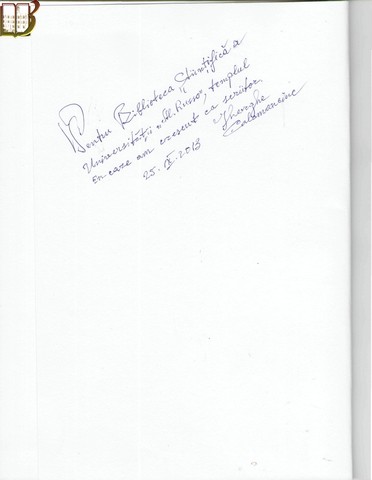 Pentru Biblioteca Științifică a
Universității „Al. Russo”, templul
în care am crescut ca scriitor.
Gheorghe
Calamanciuc
25. IX. 2013